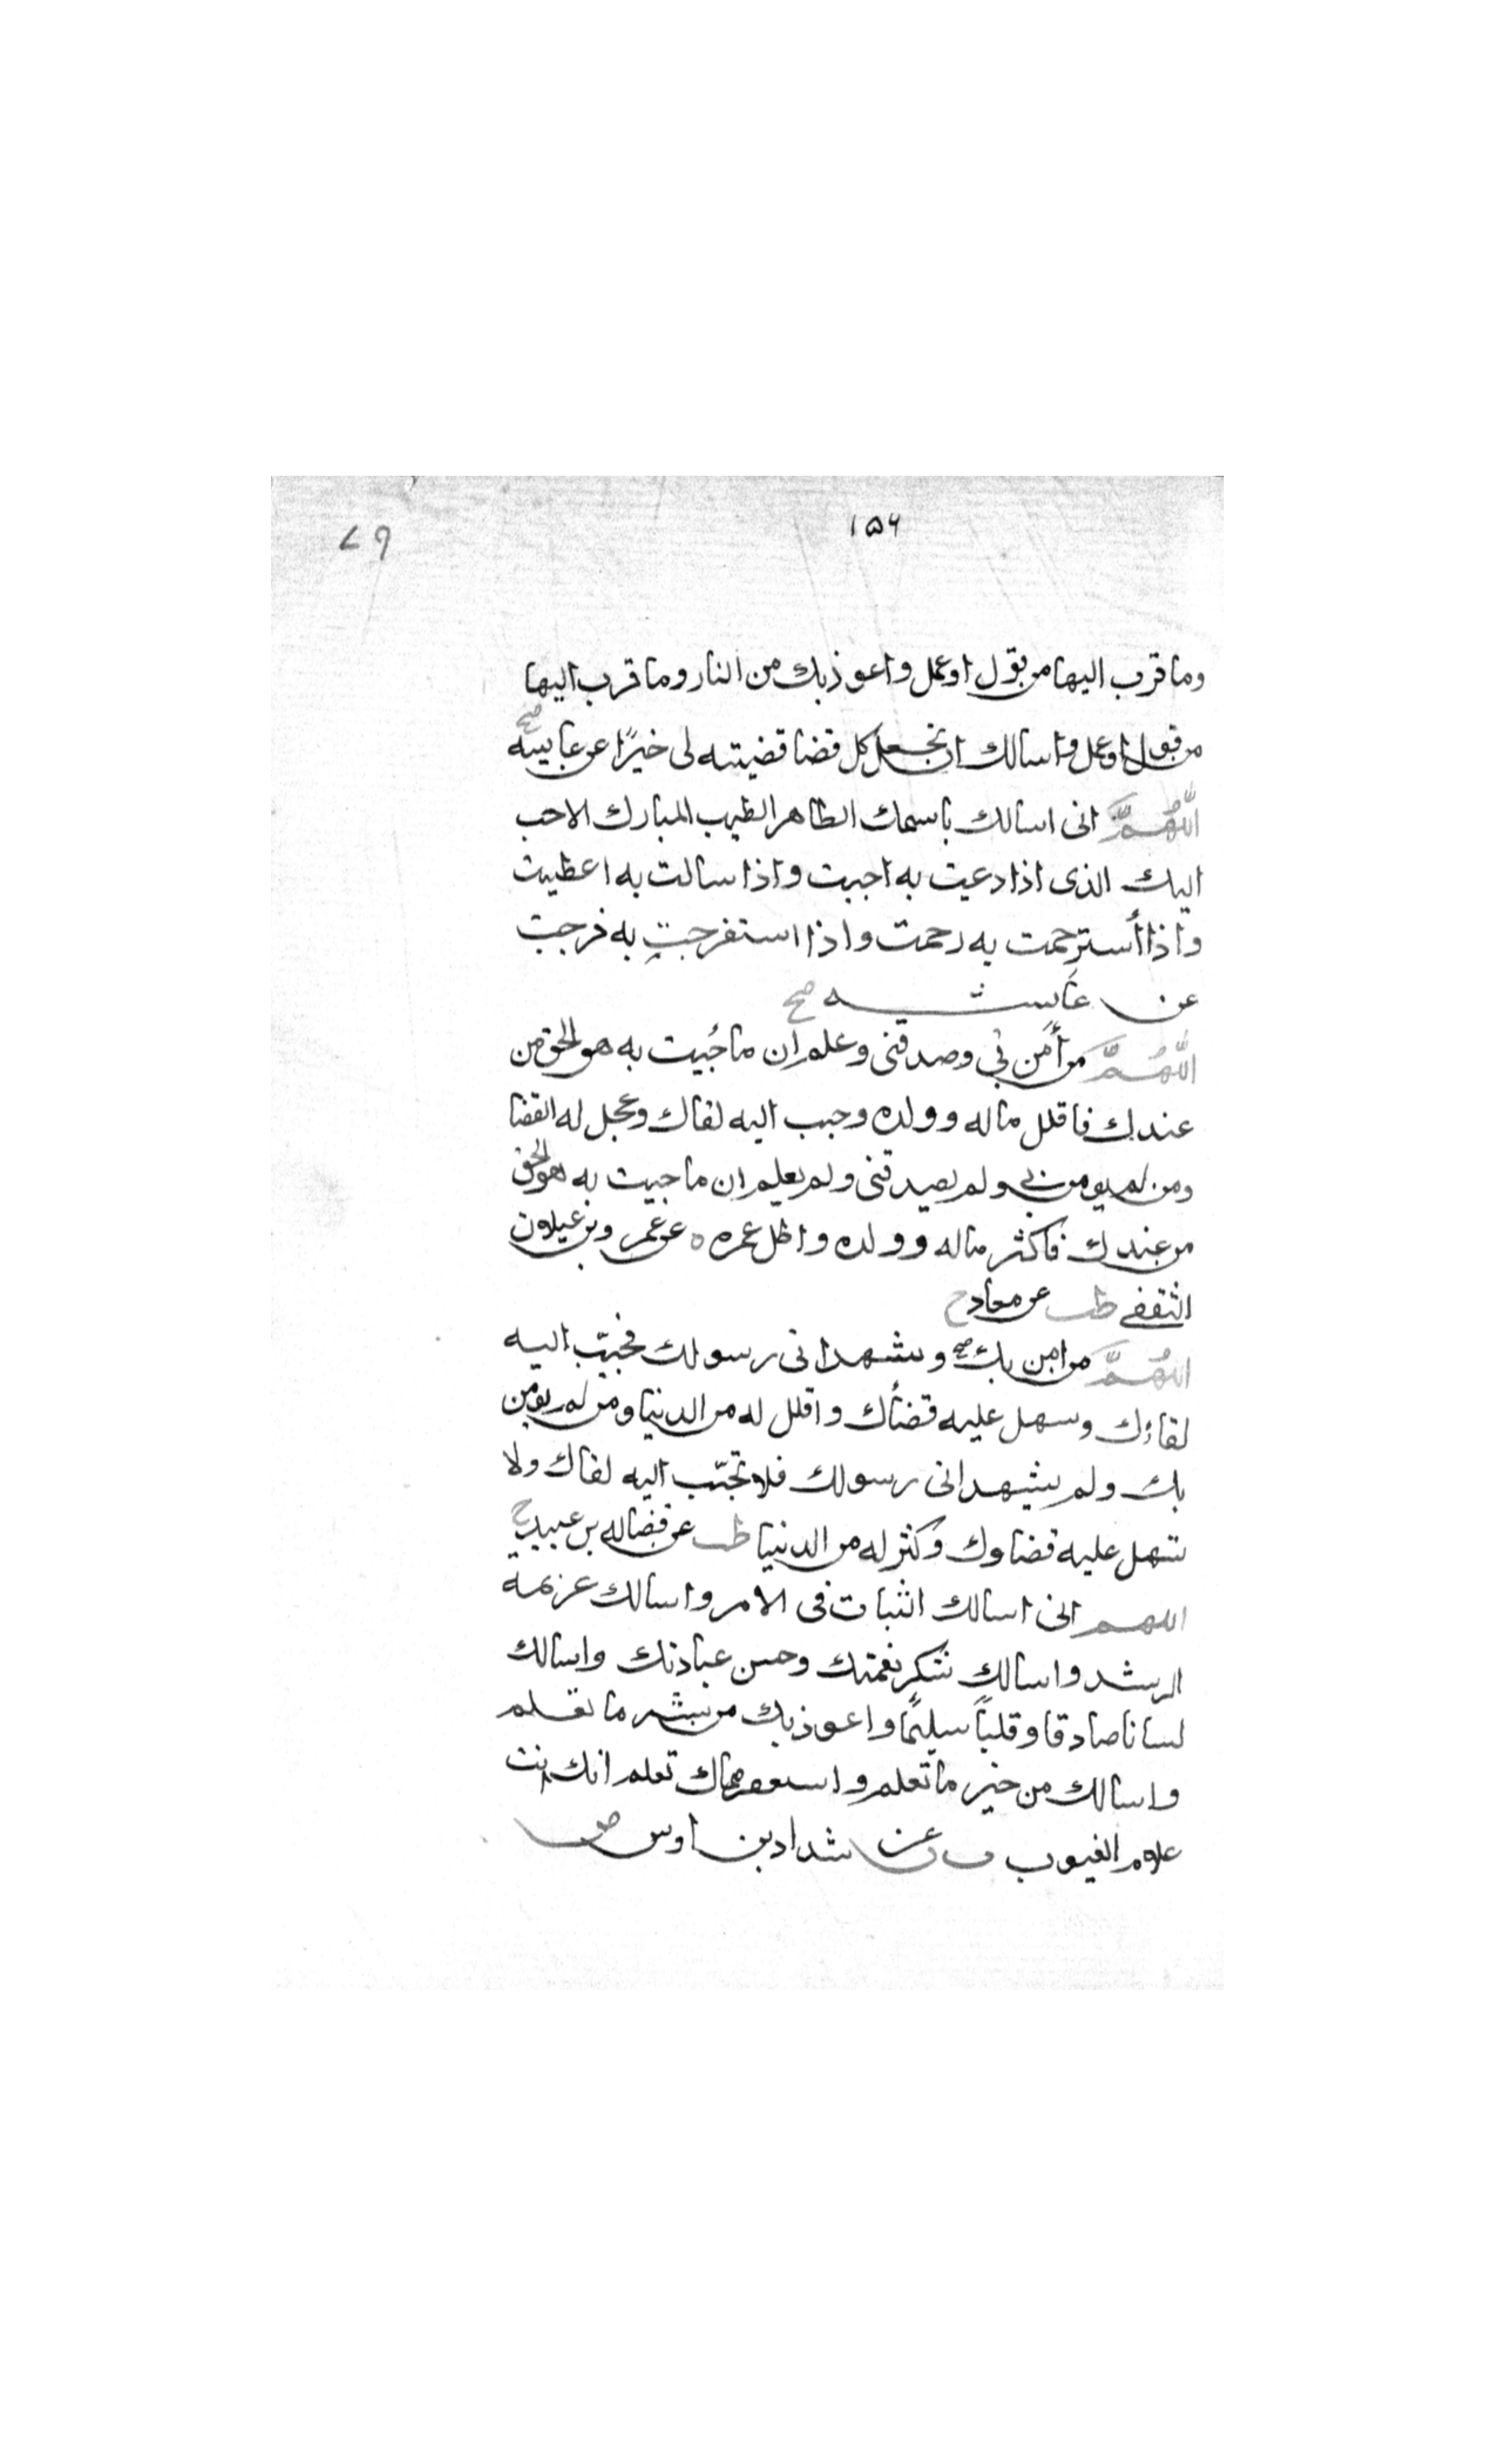 ١٥٦
٧٩
وما قرب اليها من قول او عمل واعوذ بك من النار وما قرب اليها
من قول او عمل واسالك ان تجعل كل قضا قضيته لى خيرًا عن عايشه صح
اللَّهُمَّ انى اسالك باسمك الطاهر الطيب المبارك الاحب
اليك الذى اذا دعيت به اجبت واذا سالت به اعطيت
واذا أسترحمت به رحمت واذا استفرجت به فرجت
عن عايشه صح
اللَّهُمَّ من أمن بي وصدقنى وعلم ان ما جُيت به هو الحق من
عندك فاقلل ماله وولده وحبب اليه لقاك وعجل له القضا
ومن لم يومن بي ولم يصدقنى ولم يعلم ان ما جيت به هو الحق
من عندك فاكثر ماله وولده واطل عمره ه عن عمرو بن غيلان
الثقفى طب عن معاد ح
اللهُمَّ من امن بك صح وشهد انى رسولك فحبّب اليه
لقاءك وسهل عليه قضأك واقلل له من الدنيا ومن لم يومن
بك ولم يشهد انى رسولك فلا تحبّب اليه لقاك ولا
تسهل عليه قضاوك وكثر له من الدنيا طب عن فضاله بن عبيد ح
اللهم انى اسالك الثبات فى الامر واسالك عزيمة
الرشد واسالك شكر نعمتك وحسن عبادتك واسالك
لسانا صادقا وقلباً سليمًا واعوذ بك من شر ما تعلم
واسالك من خير ما تعلم واستغفرك مما تعلم انك انت
علام الغيوب ت ن عن شداد بن اوس ض